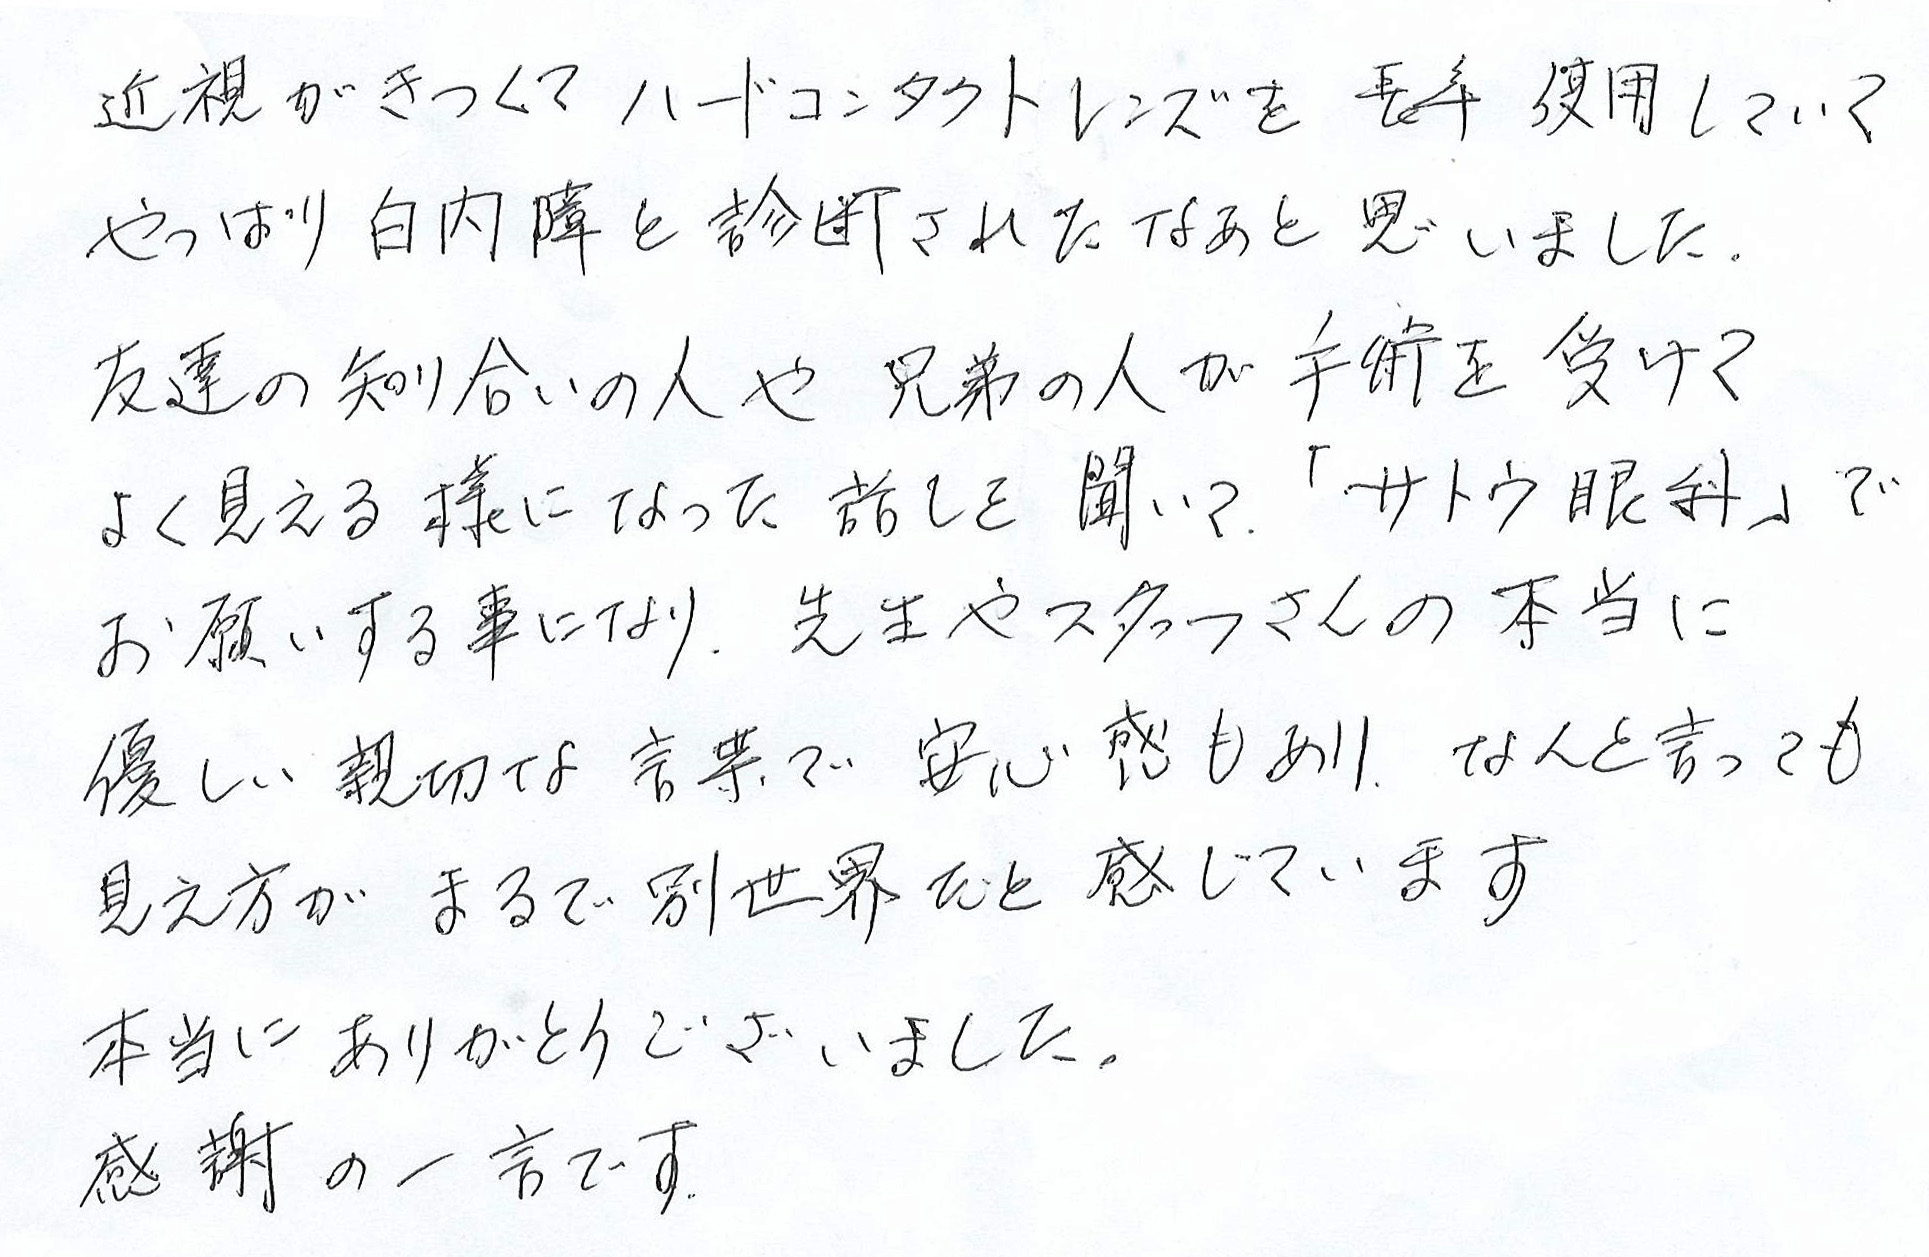 近視がきつくてハードコンタクトレンズを長年使用していて
やっぱり白内障と診断されたなあと思いました.
友達の知り合いの人や兄弟の人が手術を受けて
よく見える様になった話しを聞いて.「サトウ眼科」で
お願いする事になり.先生やスタッフさんの本当に
優しい親切な言葉で安心感もあり.なんと言っても
見え方がまるで別世界だと感じています
本当にありがとうございました.
感謝の一言です.